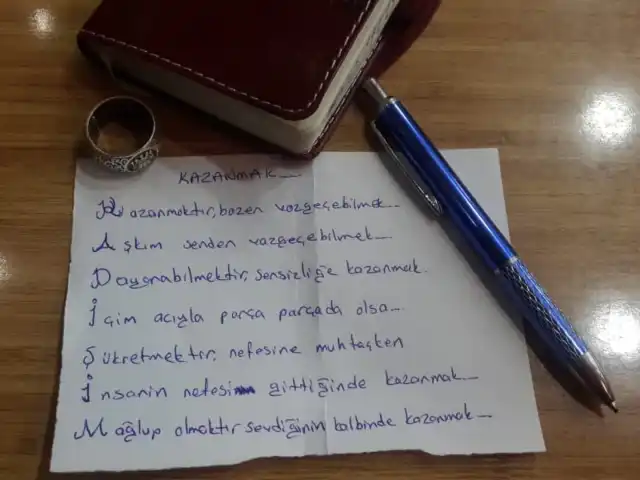 KAZANMAK...
Kazanmaktır, bazen vazgeçebilmek...
Aşkım senden vazgeçebilmek...
Dayanabilmektir, sensizliğe kazanmak.
İçim acıyla parça parçada olsa...
Şükretmektir, nefesine muhtaçken
İnsanin nefesi gittiğinde kazanmak...
Mağlup olmaktır sevdiğinin kalbinde kazanmak...